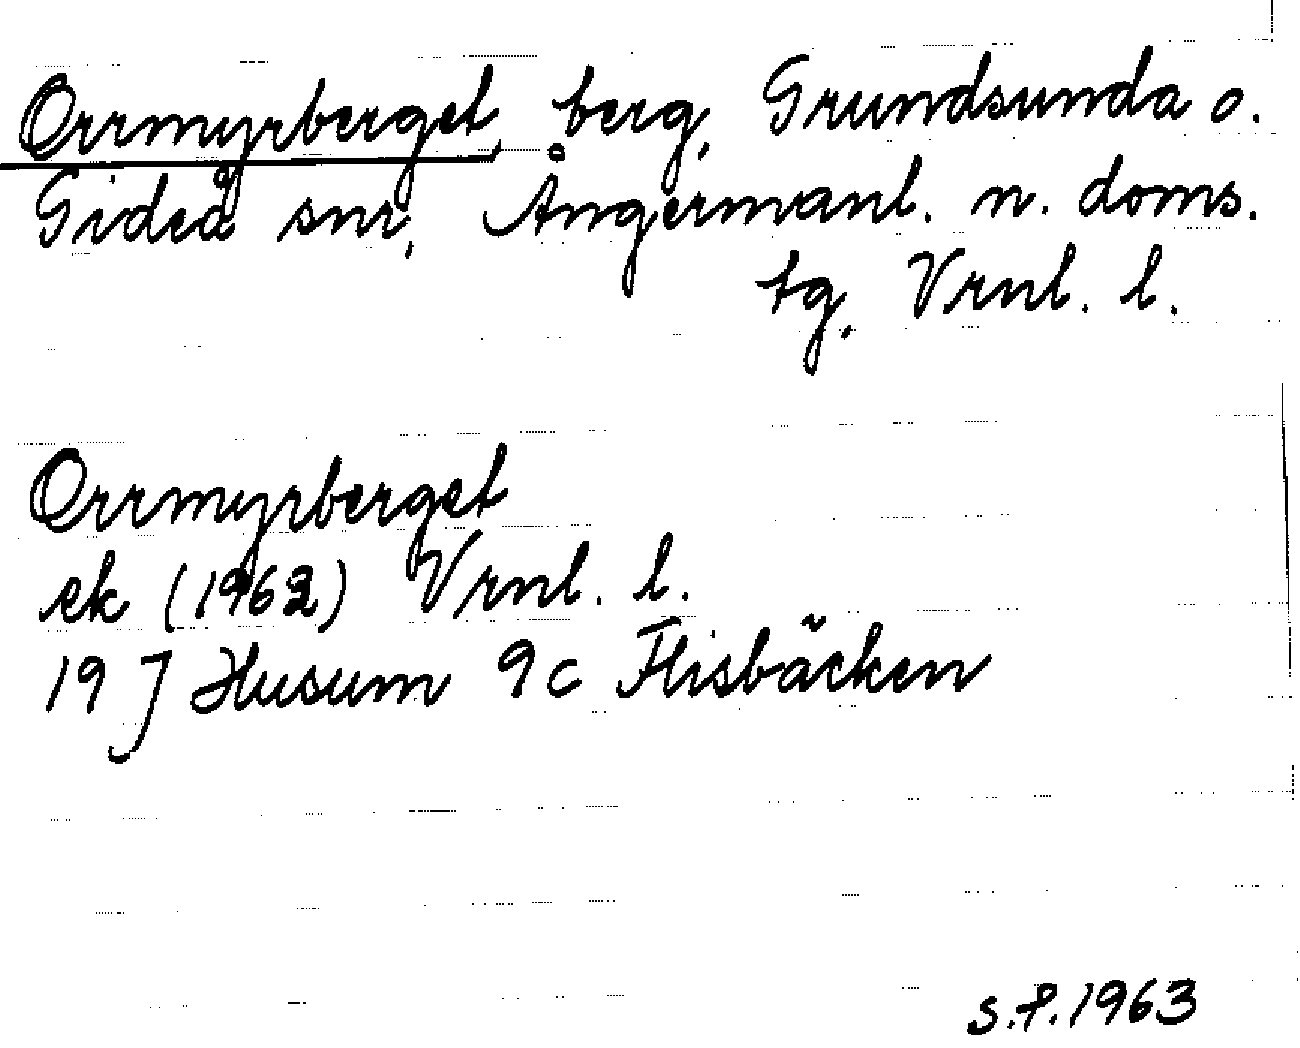 Orrmyrberget, berg, Grundsunda o.
Gideå snr, Ångermanl. n. doms.
tg, Vrnl. l.
Orrmyrberget
ek (1962) Vrnl. l.
19 J Husum 9c Flisbäcken
S.F.1963